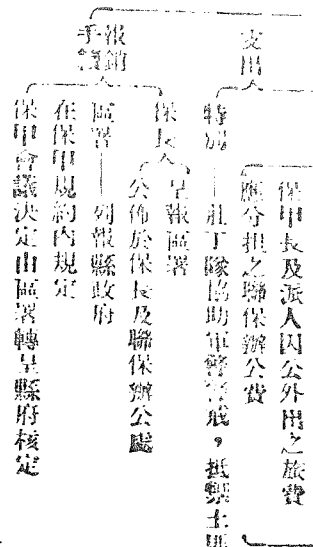 支出
保甲長及派人因公外出之旅費
應分担之聯保辦公費
特別——壯丁隊協助軍警警戒，抵禦土匪
報銷手續
保長
呈報區署
公佈於保長及聯保辦公處
區署——列報縣政府
在保甲規約內規定
保甲會議決定由區署轉呈縣府核定